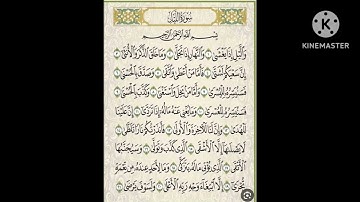 سُورَةُ اللَّيْلِ
بِسْمِ اللَّهِ الرَّحْمَٰنِ الرَّحِيمِ
وَالَّيْلِ إِذَا يَغْشَىٰ وَالنَّهَارِ إِذَا تَجَلَّىٰ وَمَا خَلَقَ الذَّكَرَ وَالْأُنثَىٰ
إِنَّ سَعْيَكُمْ لَشَتَّىٰ فَأَمَّا مَنْ أَعْطَىٰ وَاتَّقَىٰ وَصَدَّقَ بِالْحُسْنَىٰ
فَسَنُيَسِّرُهُ لِلْيُسْرَىٰ وَأَمَّا مَن بَخِلَ وَاسْتَغْنَىٰ وَكَذَّبَ بِالْحُسْنَىٰ
فَسَنُيَسِّرُهُ لِلْعُسْرَىٰ وَمَا يُغْنِي عَنْهُ مَالُهُ إِذَا تَرَدَّىٰ إِنَّ عَلَيْنَا
لَلْهُدَىٰ وَإِنَّ لَنَا لَلْآخِرَةَ وَالْأُولَىٰ فَأَنذَرْتُكُمْ نَارًا تَلَظَّىٰ
لَا يَصْلَاهَا إِلَّا الْأَشْقَى الَّذِي كَذَّبَ وَتَوَلَّىٰ وَسَيُجَنَّبُهَا
الْأَتْقَى الَّذِي يُؤْتِي مَالَهُ يَتَزَكَّىٰ وَمَا لِأَحَدٍ عِندَهُ مِن نِّعْمَةٍ
تُجْزَىٰ إِلَّا ابْتِغَاءَ وَجْهِ رَبِّهِ الْأَعْلَىٰ وَلَسَوْفَ يَرْضَىٰ
KINEMASTER